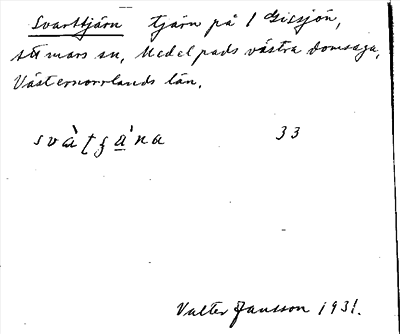 Svarttjärn tjärn på 1 Gissjön,
Attmars sn, Medelpads västra domsaga,
Västernorrlands län.
svàʈʂá̱na 33
Valter Jansson 1931.